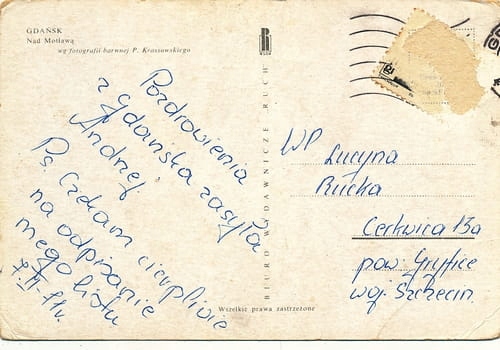 GDAŃSK
Nad Motławą
wg fotografii barwnej P. Krassowskiego
Pozdrowienia
z Gdańska zasyła
Andrzej
Ps. Czekam cierpliwie
na odpisanie
mego listu
BIURO WYDAWNICZE RUCH
WP Lucyna
Rućka
Cerkwica 13a
pow. Gryfice
woj. Szczecin.
Wszelkie prawa zastrzeżone